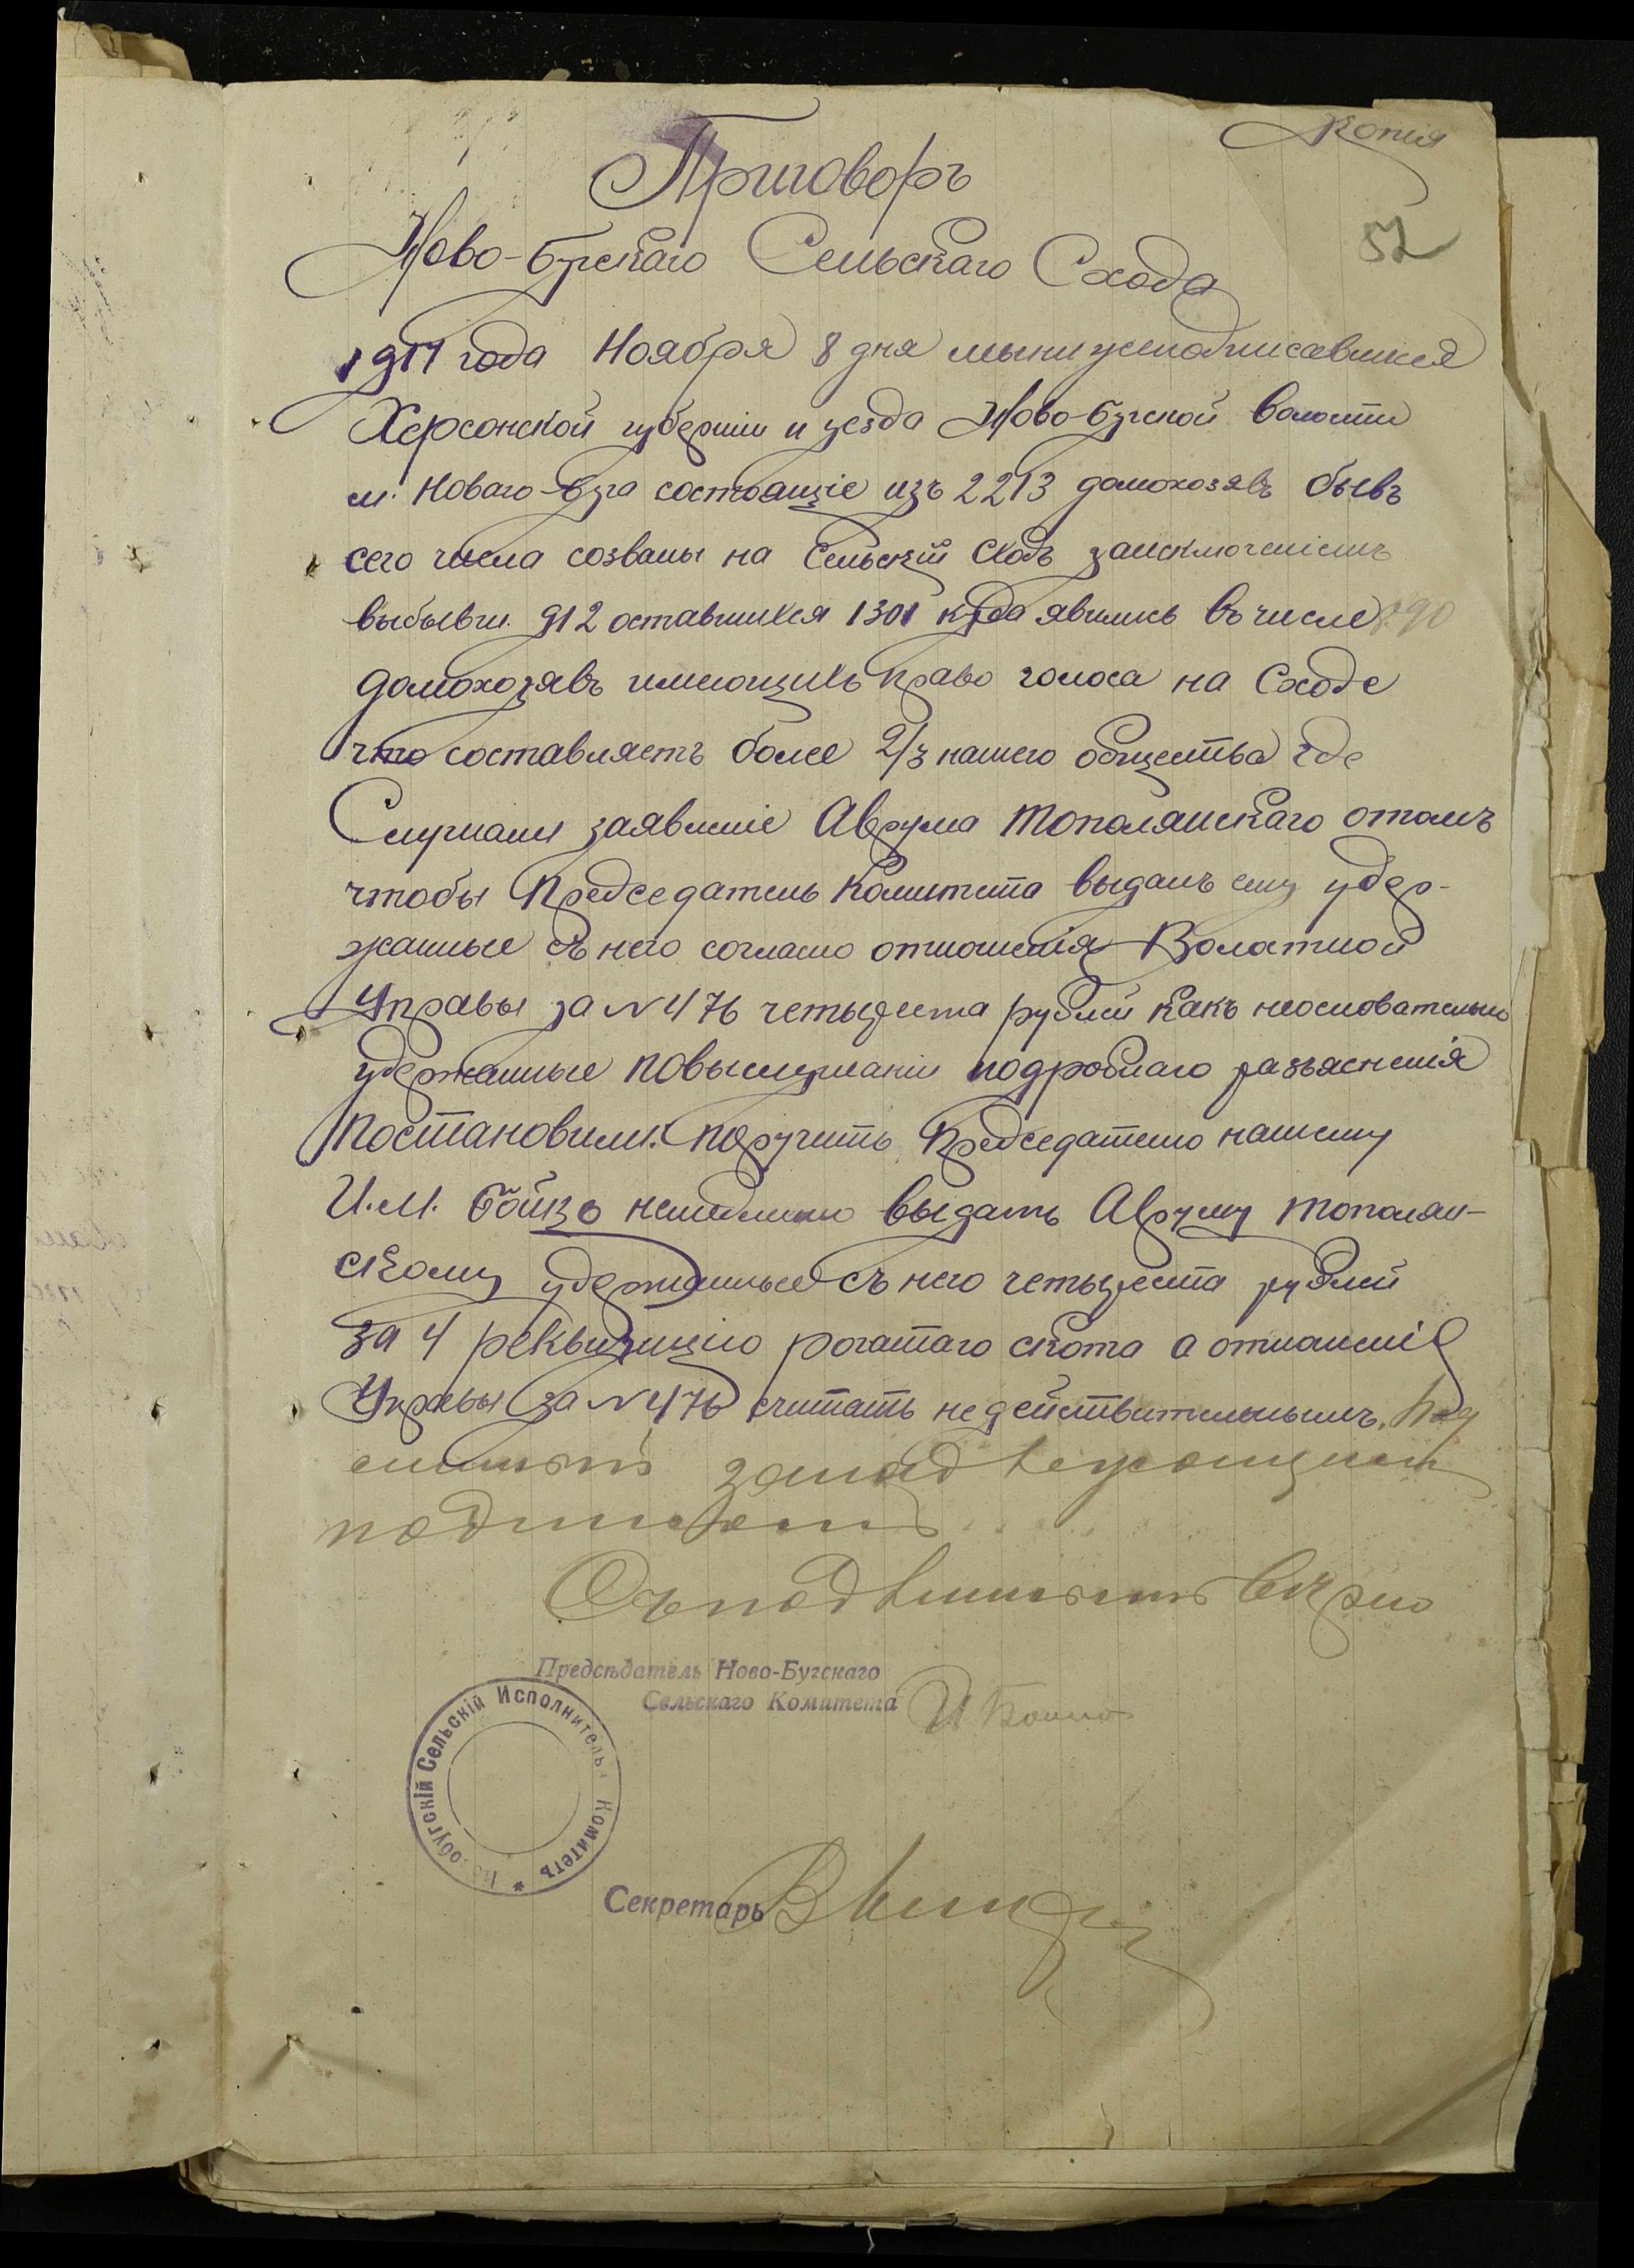 Копія
52
Приговоръ
Ново-Бугскаго Сельскаго Схода
1917 года Ноября 8 дня мынижеподписавшися
Херсонской губерніи и уезда Ново-Бугской волости
м. Новаго-Буга состоящіе изъ 2213 домохозявъ бывъ
сего числа созваны на Сельскій Сходъ заисключеніемъ
выбывш. 912 оставшихся 1301 куда явились въ числе 890
домохозявъ имеющихъ право голоса на Сходе
что составляетъ более 2/3 нашего общества где
Слушали заявленіе Аврума Тополянскаго отомъ
чтобы Председатель Комитета выдалъ ему удер-
жанные съ него согласно отношенія Волостной
Управы за №476 четыреста рублей какъ неосновательно
удержанные повыслушании подробнаго разъясненія
Постановили: поручить Председателю нашему
И.М. Бойко немедленно выдать Авруму Тополян-
скому удержанные съ него четыреста рублей
за 4 реквизицію рогатаго скота а отношеніе
Управы за №476 считать недействительнымъ. Под
линный занадлежащим
подписомъ
Съ подлиннымъ верно
Предсѣдатель Ново-Бугскаго
Сельскаго Комитета И Бойко
Новобугскій Сельскій Исполнительн Комитетъ *
Секретарь